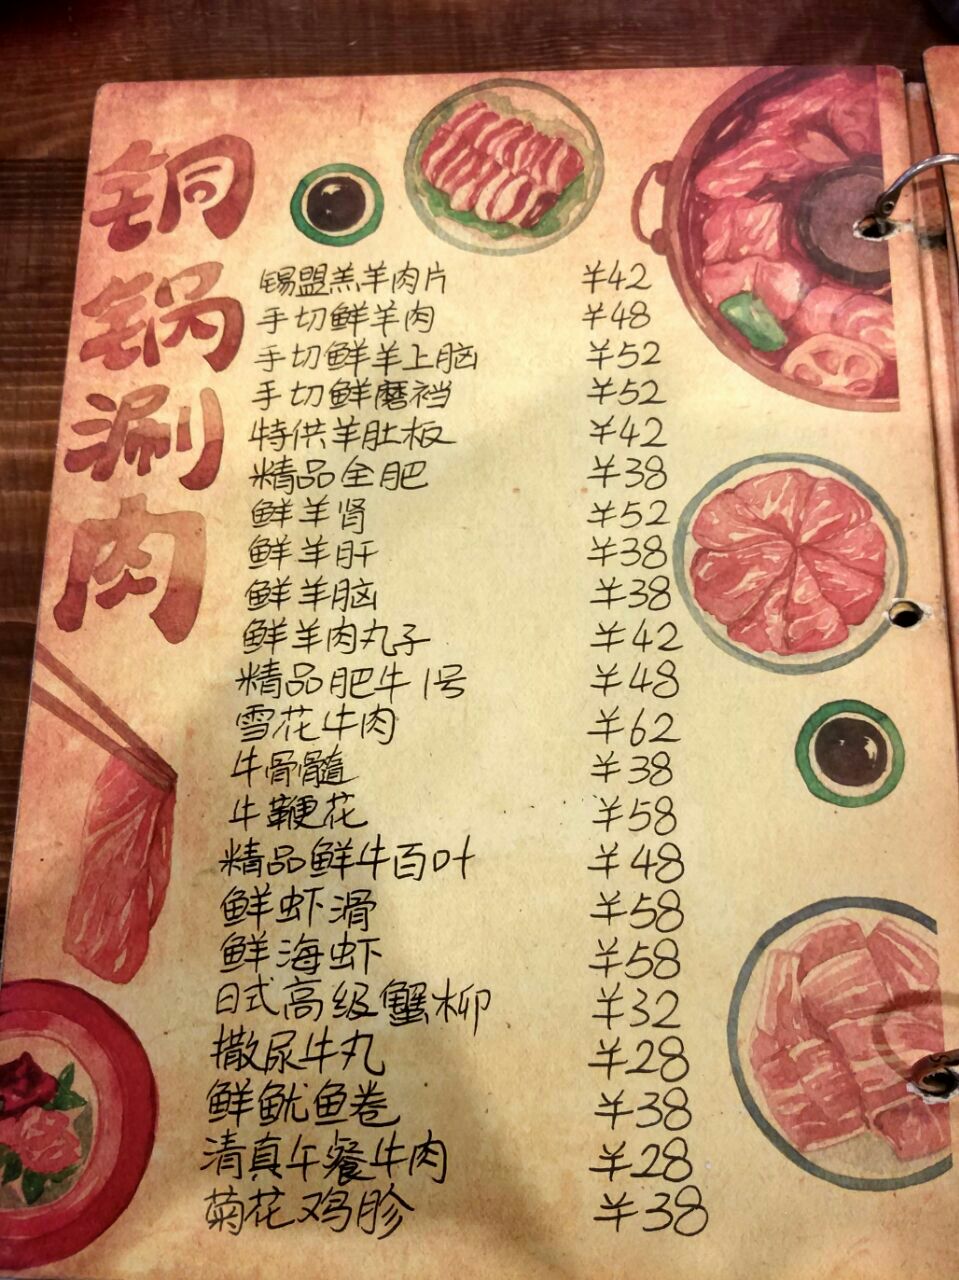 铜锅涮肉
锡盟羔羊肉片 ¥42
手切鲜羊肉 ¥48
手切鲜羊上脑 ¥52
手切鲜磨裆 ¥52
特供羊肚板 ¥42
精品全肥 ¥38
鲜羊肾 ¥52
鲜羊肝 ¥38
鲜羊脑 ¥38
鲜羊肉丸子 ¥42
精品肥牛1号 ¥48
雪花牛肉 ¥62
牛骨髓 ¥38
牛鞭花 ¥58
精品鲜牛百叶 ¥48
鲜虾滑 ¥58
鲜海虾 ¥58
日式高级蟹柳 ¥32
撒尿牛丸 ¥28
鲜鱿鱼卷 ¥38
清真午餐牛肉 ¥28
菊花鸡胗 ¥38